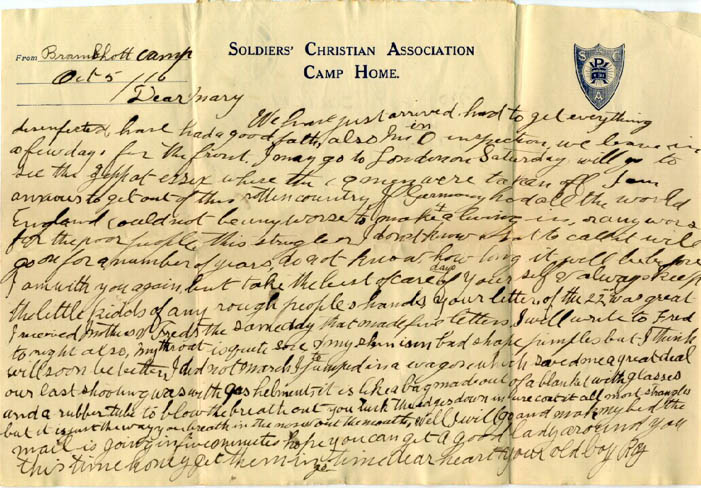 SOLDIERS' CHRISTIAN ASSOCIATION
CAMP HOME.
From Bramshott Camp
Oct 5/16
S C A
Dear Mary
We have just arrived, had to get everything
disinfected, have had a good bath, also in inspection, we leave in
a few days for the front, I may go to London on Saturday will go to
see the where the men were taken off. I am
anxious to get out of this rotten country if Germany had all the world
England could not be any worse to make a living in, or any worse
for the poor people, this struggle or I don't know what to call it will
go on for a number of years, do not know how long it will be before
I am with you again, but take the best of care of your self & always keep
the little kiddo's of any rough people's hands, your letter of the 22 was great
I received mother's & Fred's the same day that made five letters. I will write to Fred
to night also, my throat is quite sore & my skin is in bad shape pimples but I think
will soon be better, I did not march I jumped in a wagon which saved me a great deal
our last shooting was with gas helment, it is like a bag made out of a blanket with glasses
and a rubber tube to blow the breath out you tuck the edges down in your coat it almost strangles
but it is just the way you breath in the nose & out the mouth, Well I will go and make my bed the
mail is going in five minutes hope you can get a good lady around you
this time honey get them in time dear heart your old boy Roy